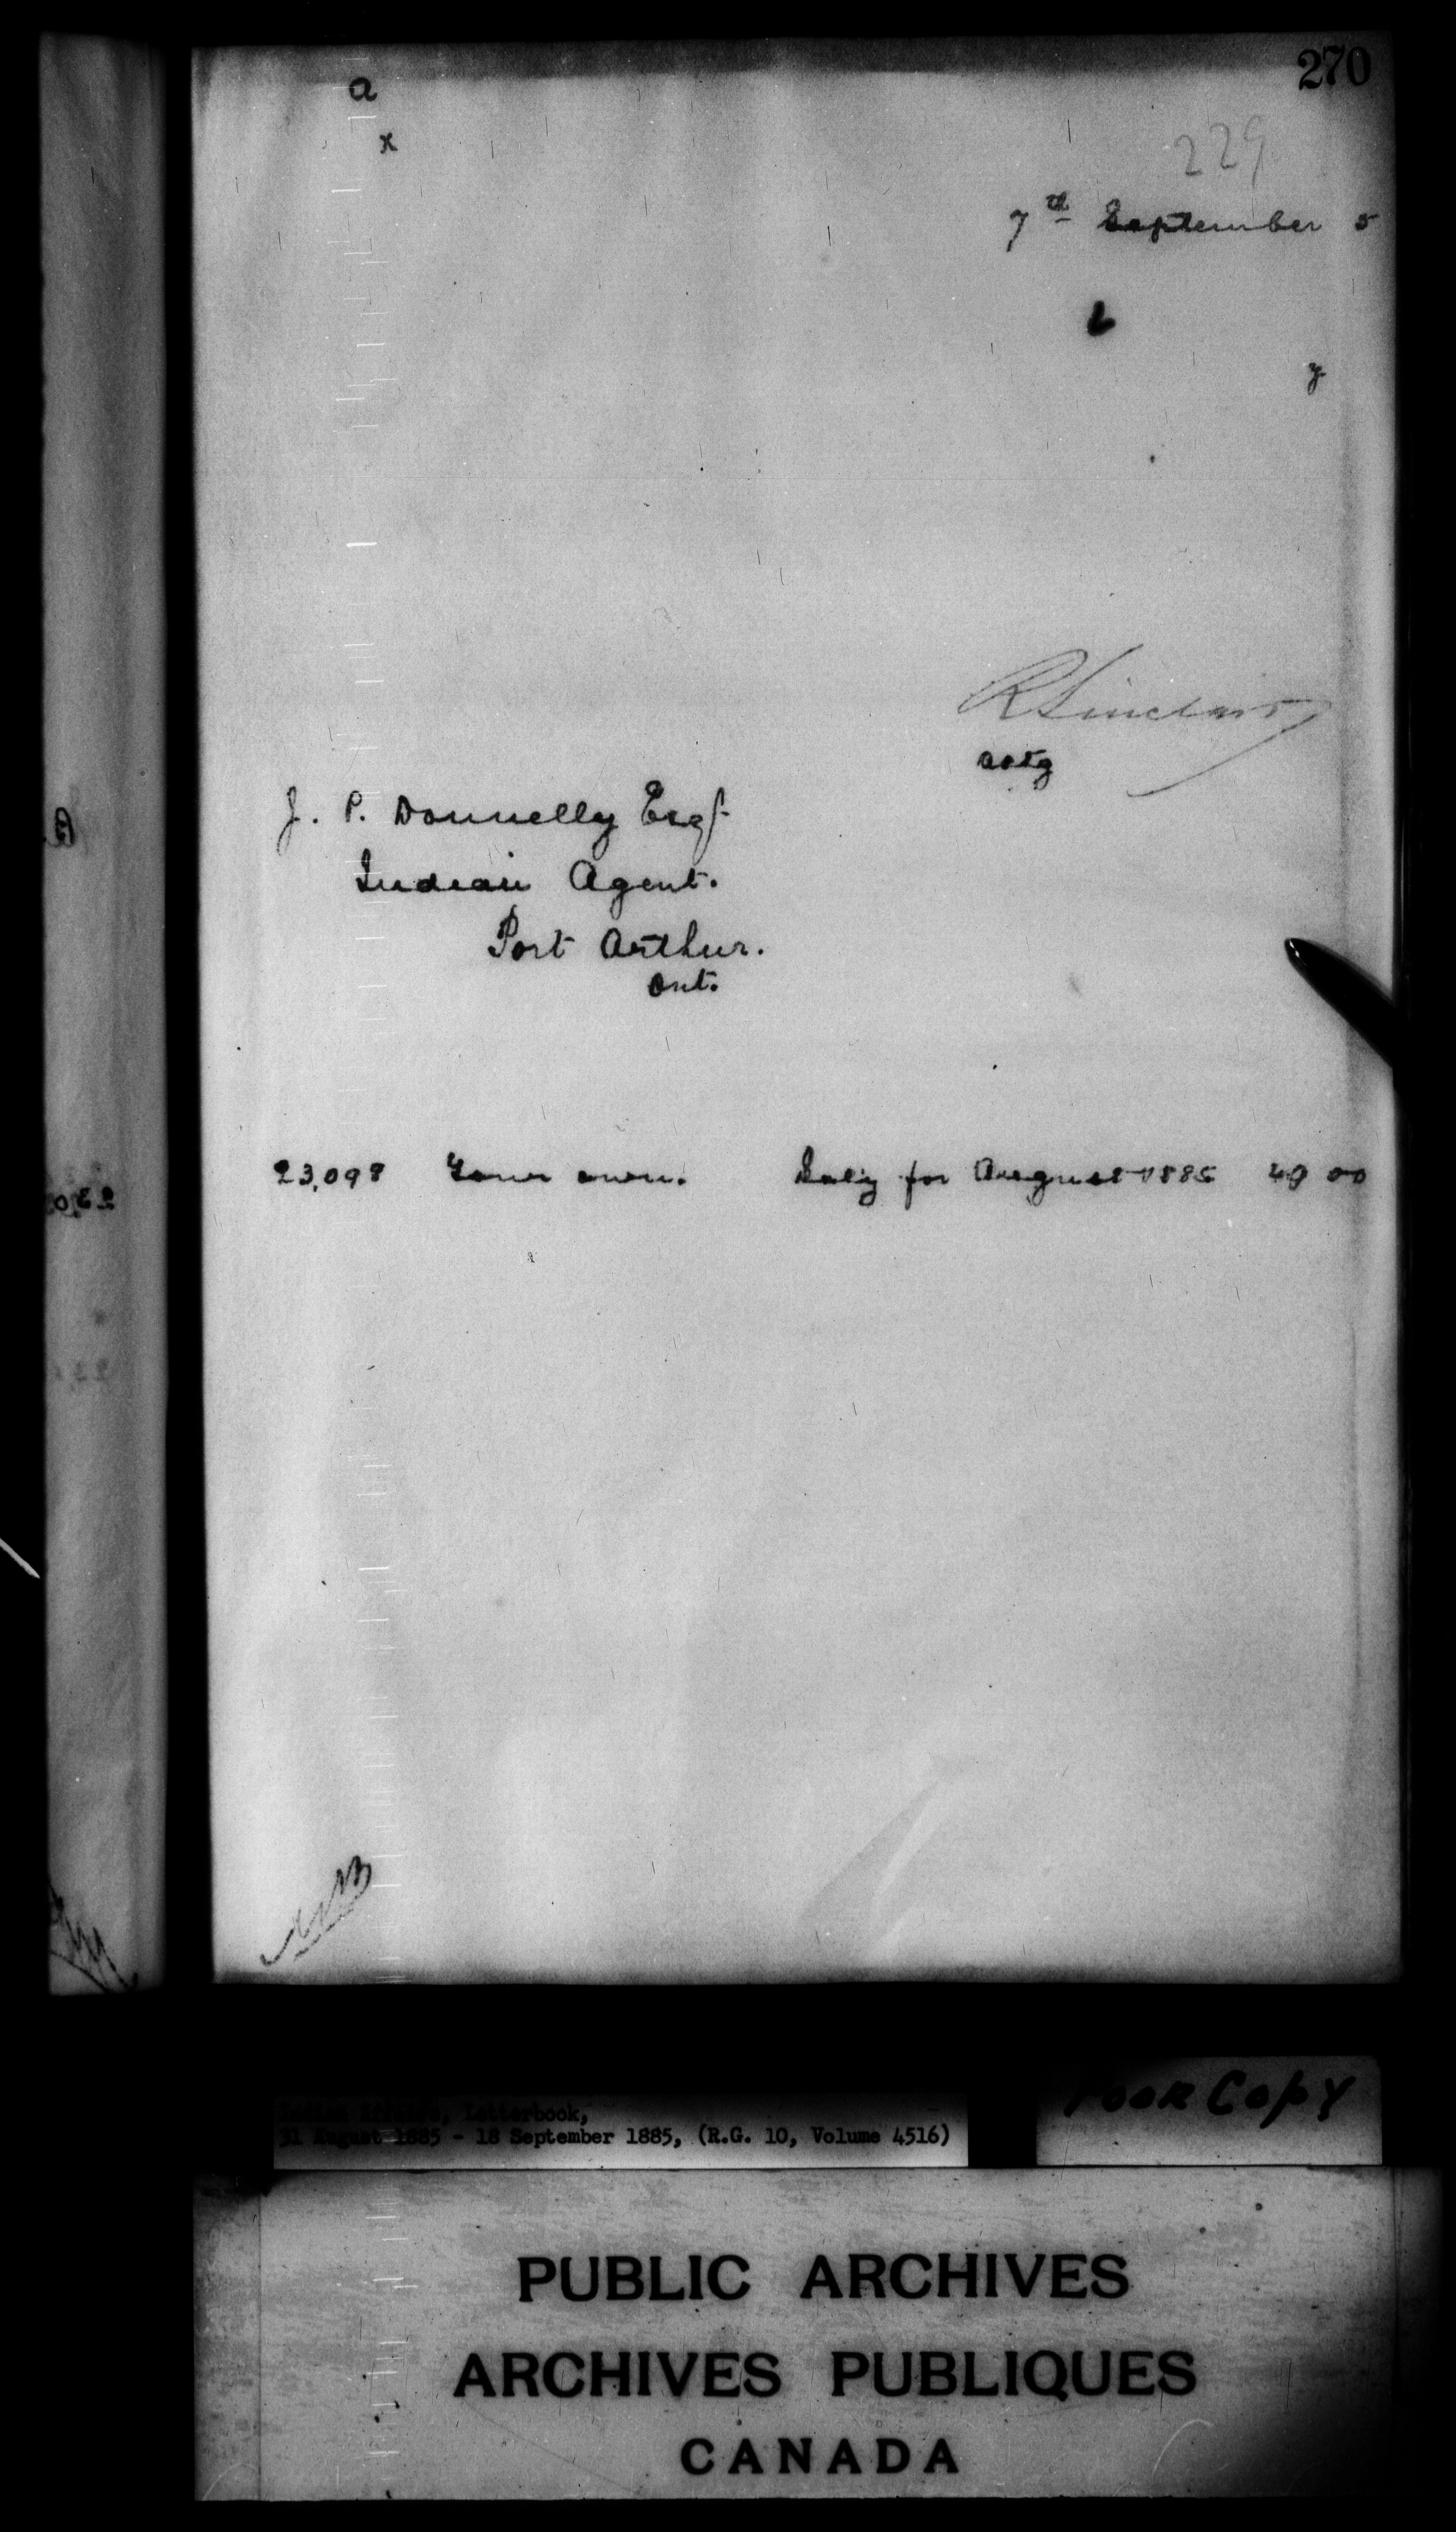 270
a
x
229
7th September 5
L
y
R Sinclair
actg
J. P. Donnelly Esqr
Indian Agent.
Port Arthur.
Ont.
23,098 Your own. Saly for August 1885 40 00
Indian Affairs, Letterbook,
31 August 1885 - 18 September 1885, (R.G. 10, Volume 4516)
Poor Copy
PUBLIC ARCHIVES
ARCHIVES PUBLIQUES
CANADA